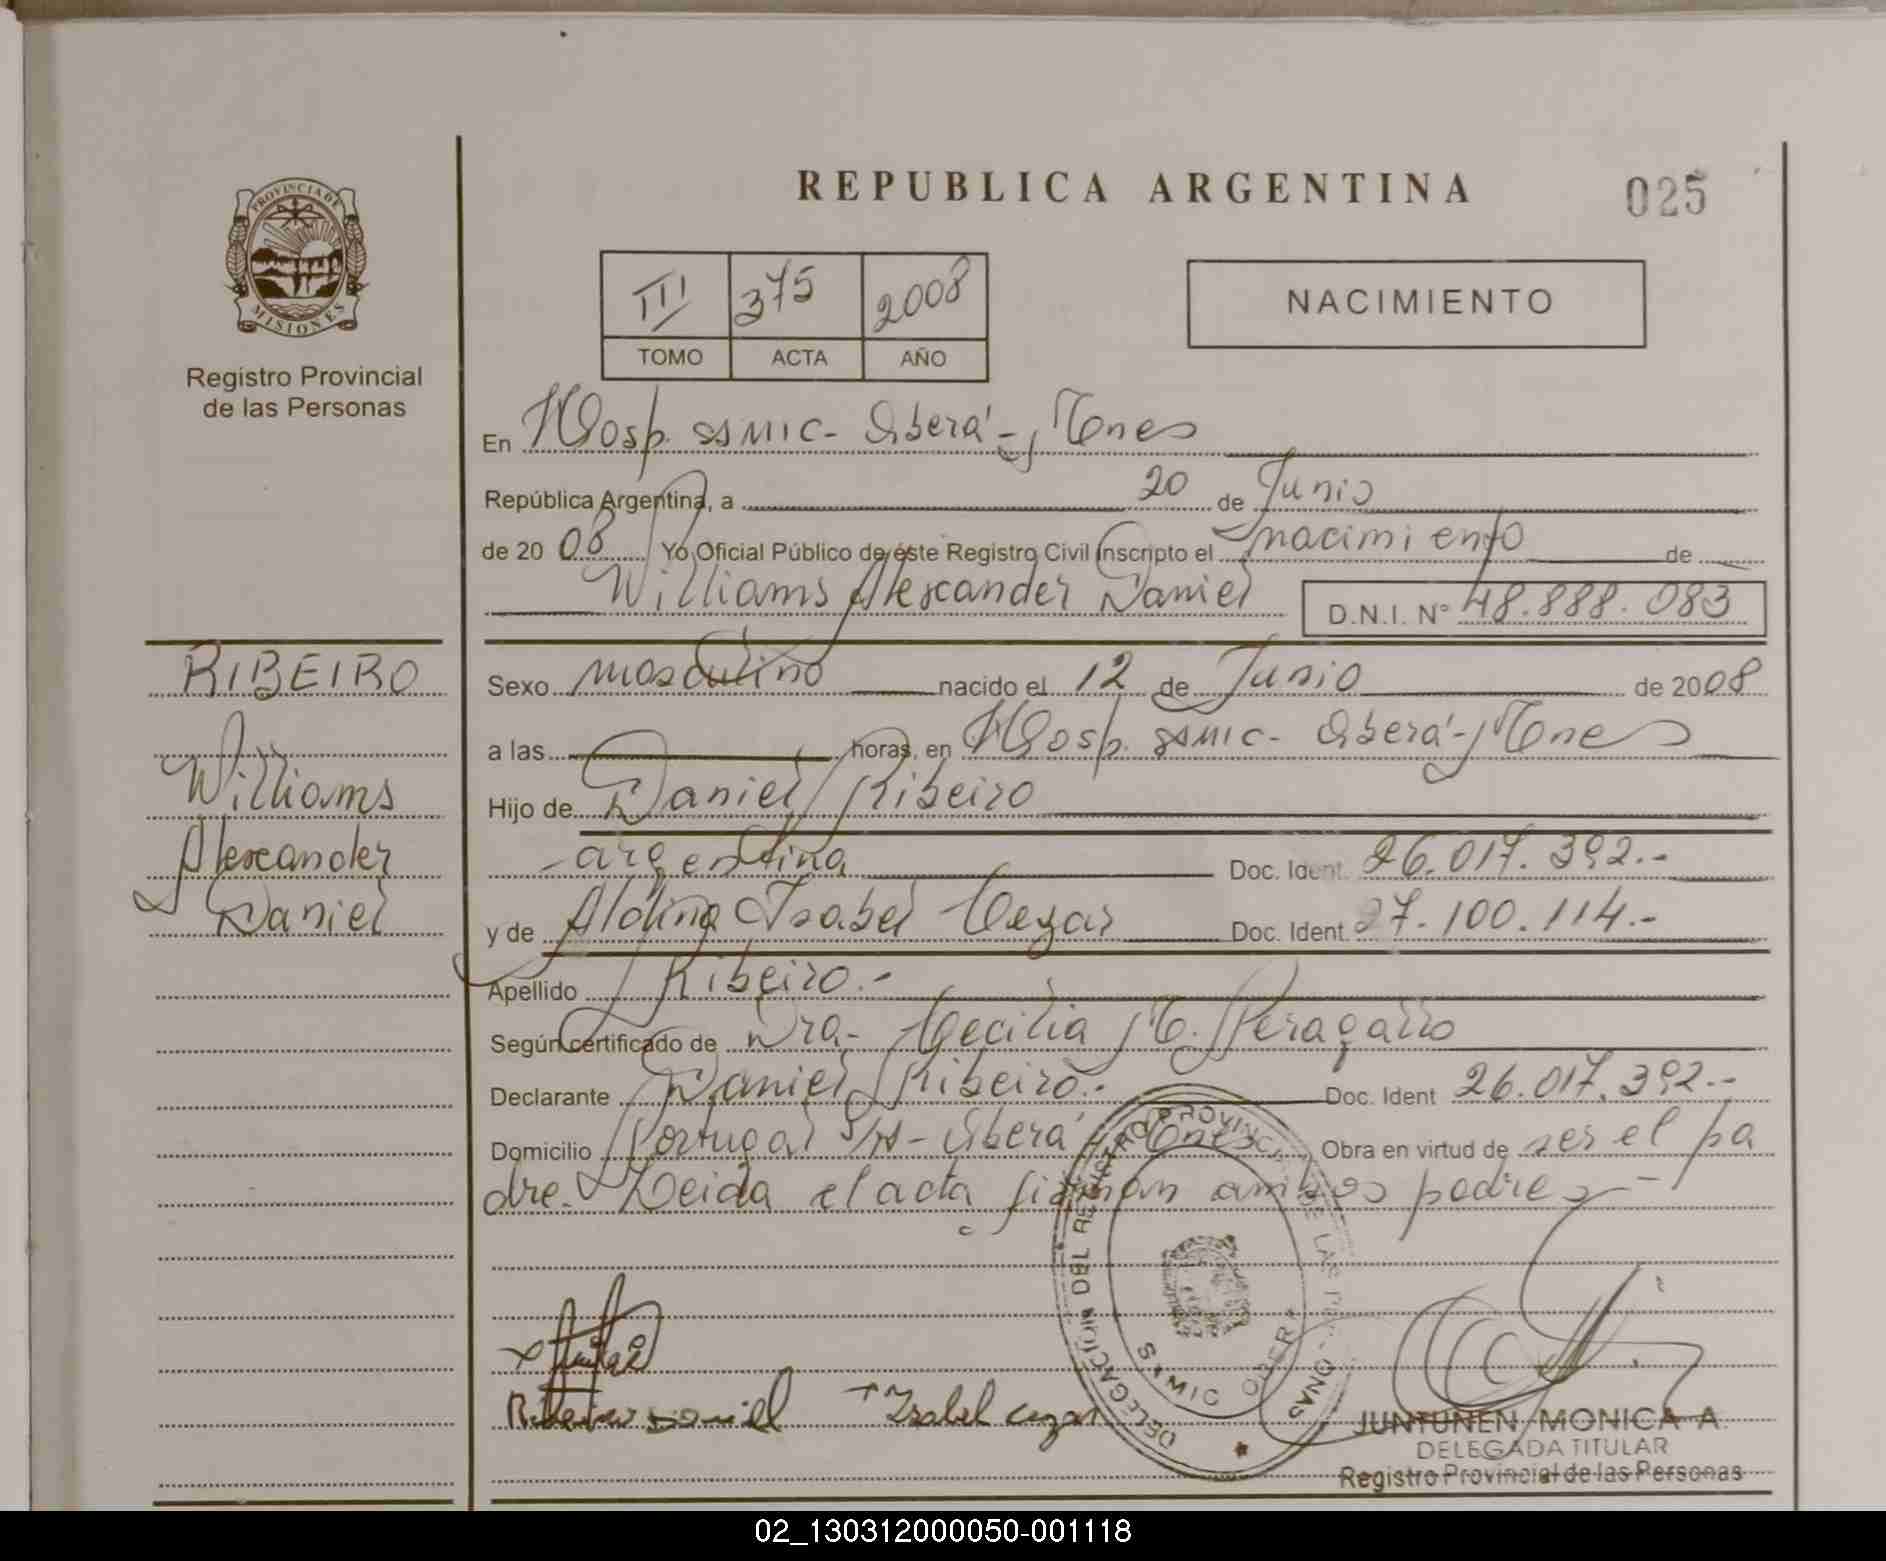 REPUBLICA ARGENTINA
025
PROVINCIA DE
MISIONES
Registro Provincial
de las Personas
III 375 2008
TOMO ACTA AÑO
NACIMIENTO
En Hosp. SSMIC- Oberá-, Mnes
República Argentina, a 20 de Junio
de 2008 Yo Oficial Público de éste Registro Civil inscripto el nacimiento de
Williams Alexander Daniel D.N.I. N° 48.888.083
RIBEIRO
Williams
Alexander
Daniel
Sexo masculino nacido el 12 de Junio de 2008
a las horas, en Hosp. SSMIC- Oberá-, Mnes
Hijo de Daniel Ribeiro
-argentina Doc. Ident. 26.017.392.-
y de Aldina Isabel Cezar Doc. Ident. 27.100.114.-
Apellido Ribeiro.-
Según certificado de Dra. Cecilia M. Peragallo
Declarante Daniel Ribeiro.- Doc. Ident 26.017.392.-
Domicilio Portugal S/N-Oberá, Mnes Obra en virtud de ser el pa
dre. Leida el acta firman ambos padres.-
DELEGACIÓN DEL REGISTRO PROVINCIAL DE LAS PERSONAS
SAMIC OBERA
Ribeiro Daniel Isabel cezar
JUNTUNEN MONICA A.
DELEGADA TITULAR
Registro Provincial de las Personas
02_130312000050-001118